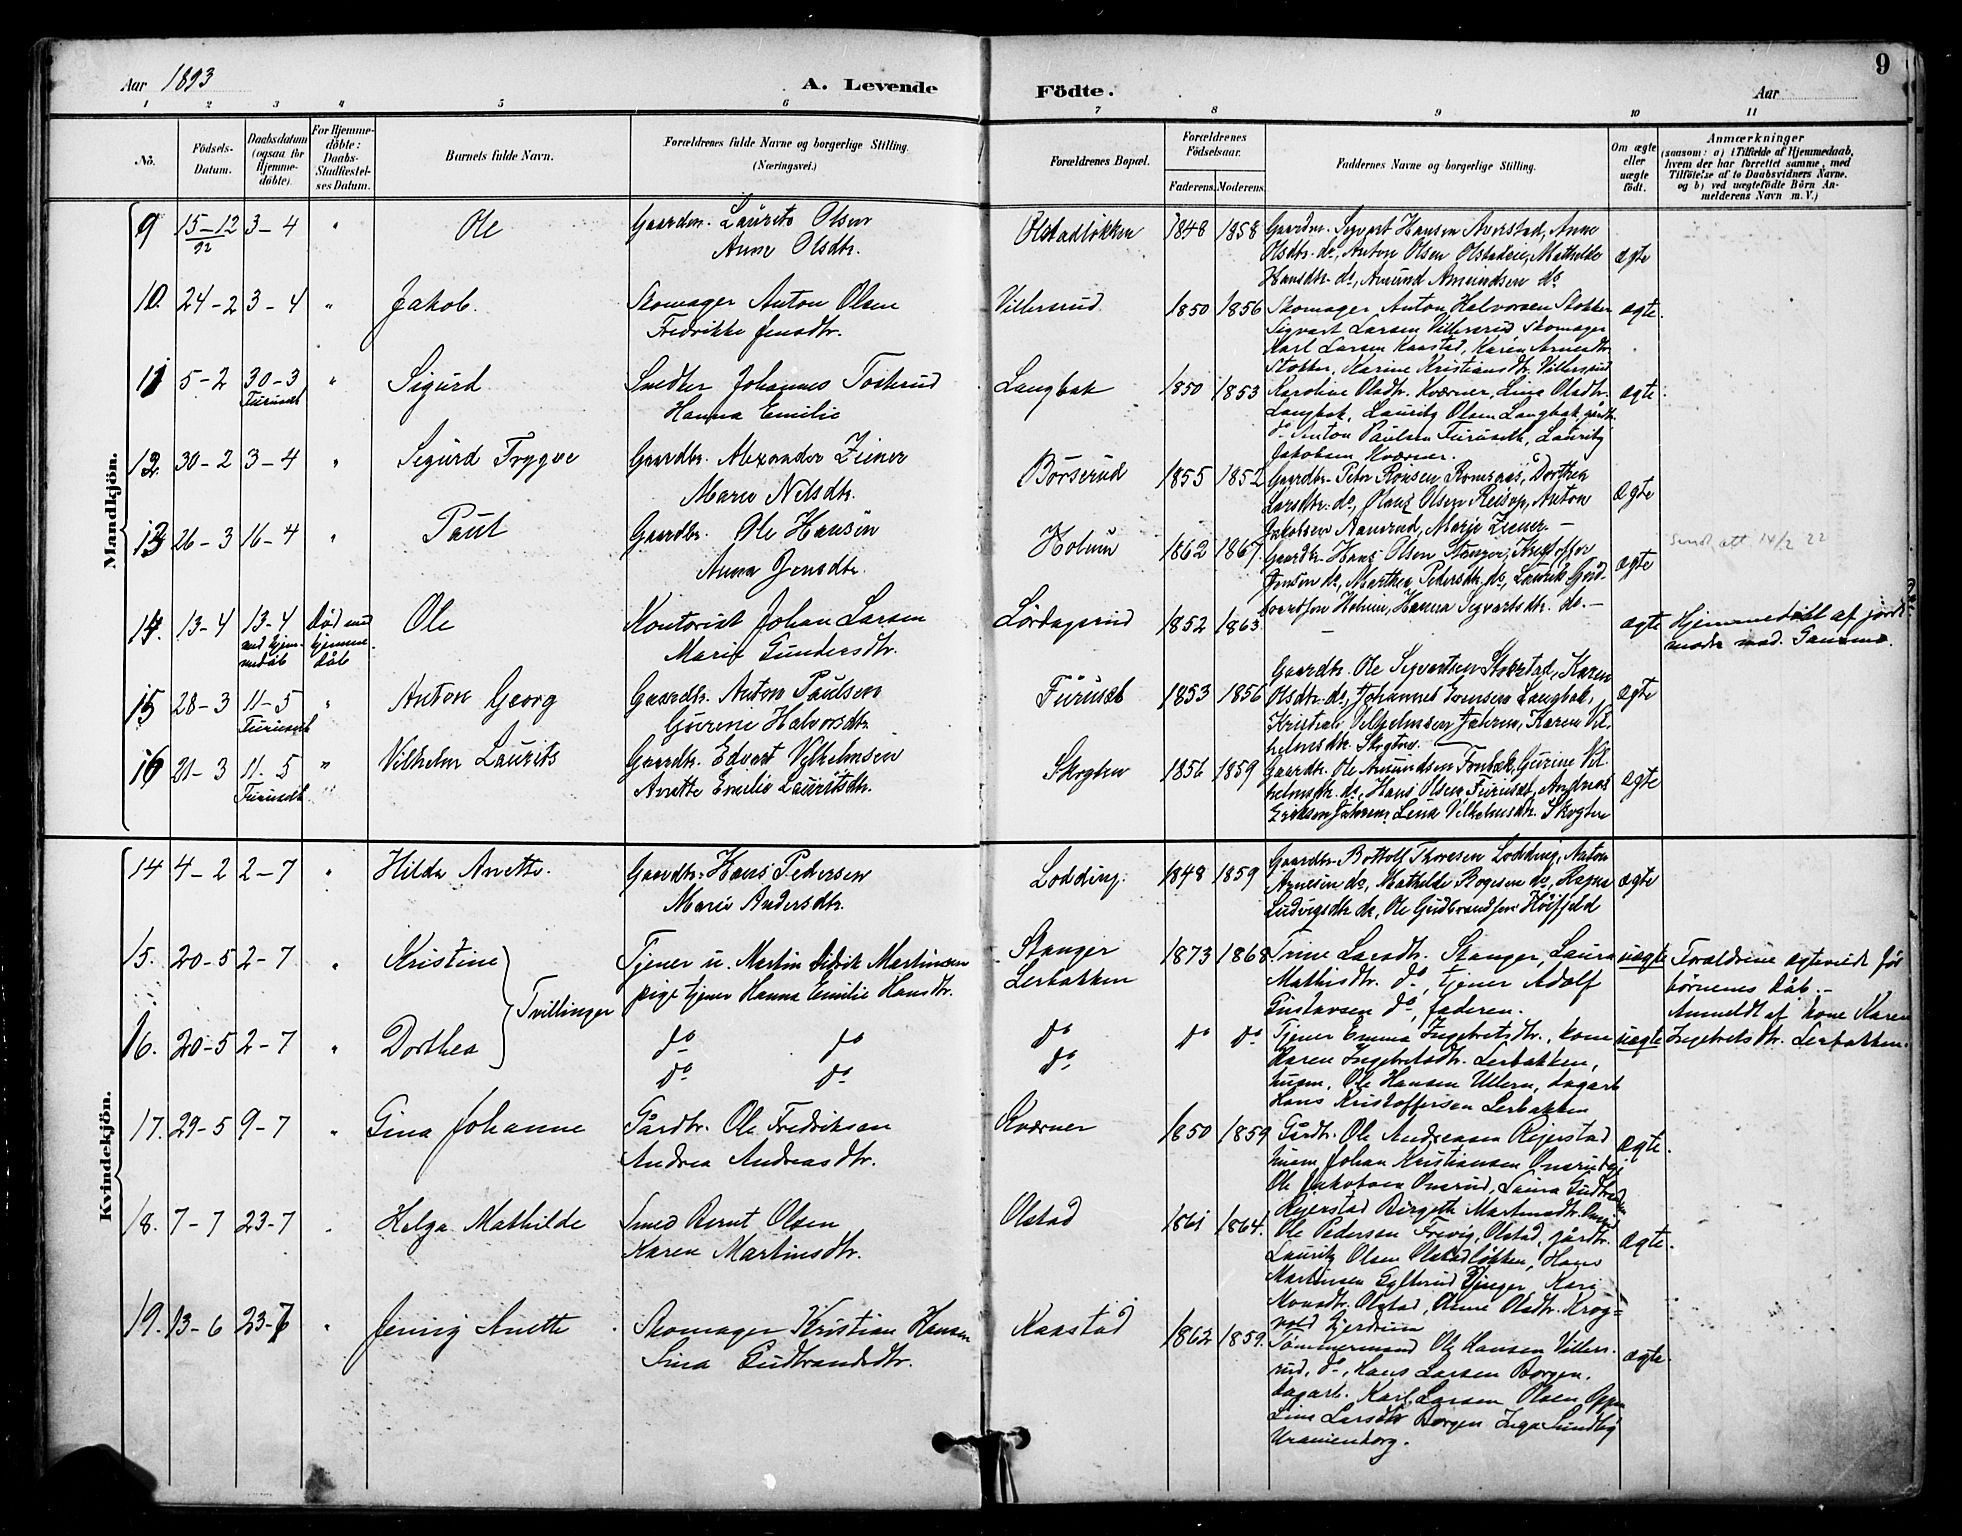 Aar 1893
A. Levende
Födte.
9
Aar
1 2 3 4 5 6 7 8 9 10 11
No.
Födsels-Datum.
Daabsdatum (ogsaa för Hjemme-döbte).
For Hjemme-döbte: Daabs-Stadfæstel-ses Datum.
Barnets fulde Navn.
Forældrenes fulde Navne og borgerlige Stilling. (Næringsvei.)
Forældrenes Bopæl.
Forældrenes Födselsaar.
Faderens. Moderens.
Faddernes Navne og borgerlige Stilling.
Om ægte eller uægte födt.
Anmærkninger
(saasom: a) i Tilfælde af Hjemmedaab,
hvem der har forrettet samme, med
Tilföielse af to Daabsvidners Navne.
og b) ved uægtefödte Börn An-
melderens Navn m. V.)
Mandkjön.
9 15-12 92 3-4 " Ole Gaardm. Laurits Olsen Olstadløkken 1848 1858 Gaardm. Sigvart Hansen Averstad, Anne
Anne Olsdtr. Olsdtr. do, Anton Olsen Olstadeie, Mathilde ægte
Hansdtr. do, Amund Amundsen do
10. 24-2 3-4 " Jakob. Skomager Anton Olsen Villersrud 1850 1856 Skomager Anton Halvorsen Stokker ægte.
Fredrikke Jensdtr. Sigvart Larsen Villersrud Skomager
Karl Larsen Kaastad, Karen Arnesdtr.
Stokker, Karine Kristiansdtr. Villersrud
11 5-2 30-3 Furuset " Sigurd Snedker Johannes Tosterud Langbak 1850 1853 Karoline Olsdtr. Kværner, Lina Olsdtr. ægte.
Hanna Emilie Langbak, Lauritz Olsen Langbak gårdbr.
do Anton Paulsen Furuseth, Lauritz
Jakobsen Kværner.
12 30-2 3-4 " Sigurd Trygve Gaardbr. Alexander Ziener Börserud 1855 1852 Gaardbr. Peter Rönsen Romsaas, Dorthea ægte
Maren Nilsdtr. Larsdtr. do, Olaus Olsen Reisop, Anton
Jakobsen Aamrud, Marie Ziener -
13 26-3 16-4 " Paul Gaardbr. Ole Hansen Holum 1862 1867 Gaardbr. Hans Olsen Stanger, Kristoffer ægte
Anna Jensdtr. Jensen do, Marthea Pedersdtr. do, Laurits Gud-
brandsen Holum, Hanna Sigvartsdtr. do. -
Sendt att 14/2 22
14. 13-4 13-4 ved hjem-medåb Död ved hjemme-dåb Ole Kontorist Johan Larsen Lördagsrud 1852 1863 - ægte Hjemmedöbt af jord-
Marie Gundersdtr. moder mad.
15 28-3 11-5 Furuset " Anton Georg Gaardbr. Anton Paulsen Furuset 1853 1856 Gaardbr. Ole Sigvartsen Stokstad, Karen ægte
Gurine Halvorsdtr. Olsdtr. do, Johannes Evensen Langbak,
Kristian Vilhelmsen Jahren, Karen Vil-
helmsdtr. Skogtun.
16 21-3 11-5 Furuset " Vilhelm Laurits Gaardbr. Edvart Vilhelmsen Skogtun 1856 1859 Gaardbr. Ole Amundsen Fonbæk, Gurine Vil- ægte
Anette Emilie Lauritsdtr. helmsdtr. do, Hans Olsen Furuset, Andreas
Eriksen Jahren, Lena Vilhelmsdtr. Skogtun
Kvindekjön.
14 4-2 2-7 " Hilda Anette. Gaardbr. Hans Pedersen Lodding. 1848 1859 Gaardbr. Bottolf Thoresen Lodding, Anton
Marie Andersdtr. Arnesen do, Mathilde Bogesen do, Hanna ægte
Ludvigsdtr. do, Ole Gudbrandsen Höifjeld
15. 20-5 2-7 " Kristine Tjener u. Martin Didrik Martinsen Stanger 1873 1868 Trine Larsdtr. Stanger, Laura uægte Forældrene ægteviede för
Tvillinger pige tjener Hanna Emilie Hansdtr. Lerbakken Mathisdtr. do, tjener Adolf börnenes dåb. -
Gustavsen do, faderen. Anmeldt af kone Karen
16. 20-5 2-7 " Dorthea do do do do do Tjener Emma Ingebretsdtr., kone uægte Ingebretsdtr. Lerbakken.
do do do Karen Ingebretsdtr. Lerbakken,
husm. Ole Hansen Ullern, dagarb.
Hans Kristoffersen Lerbakken
17. 29-5 9-7 " Gina Johanne Gårdbr. Ole Fredriksen Kværner 1850 1859 Gårdbr. Ole Andreasen Rejerstad ægte.
Andrea Andreasdtr. husm. Johan Kristiansen Onsrudeje
Ole Jakobsen Onsrud, Laura
Rejerstad Birgith Martinsdtr.
18. 7-7 23-7 " Helga Mathilde Smed Bernt Olsen Olstad 1861 1864. Ole Pedersen Frevig, Olstad, gårdbr. ægte.
Karen Martinsdtr. Lauritz Olsen Olstadløkken, Hans
Martinsen Gylterud Kari
Monsdtr. Olstad, Anne Olsdtr. Krog-
vold Gjerdrum
19. 13-6 23-7 " Jenny Anette Skomager Kristian Hansen Kaastad 1862 1859. Tömmermand Ole Hansen Villers- ægte.
Lina Gudbrandsdtr. rud, do, Hans Larsen Borgen.
dagarb. Karl Larsen Olsen
Line Larsdtr. Borgen Inga Sundby
Uranienborg.